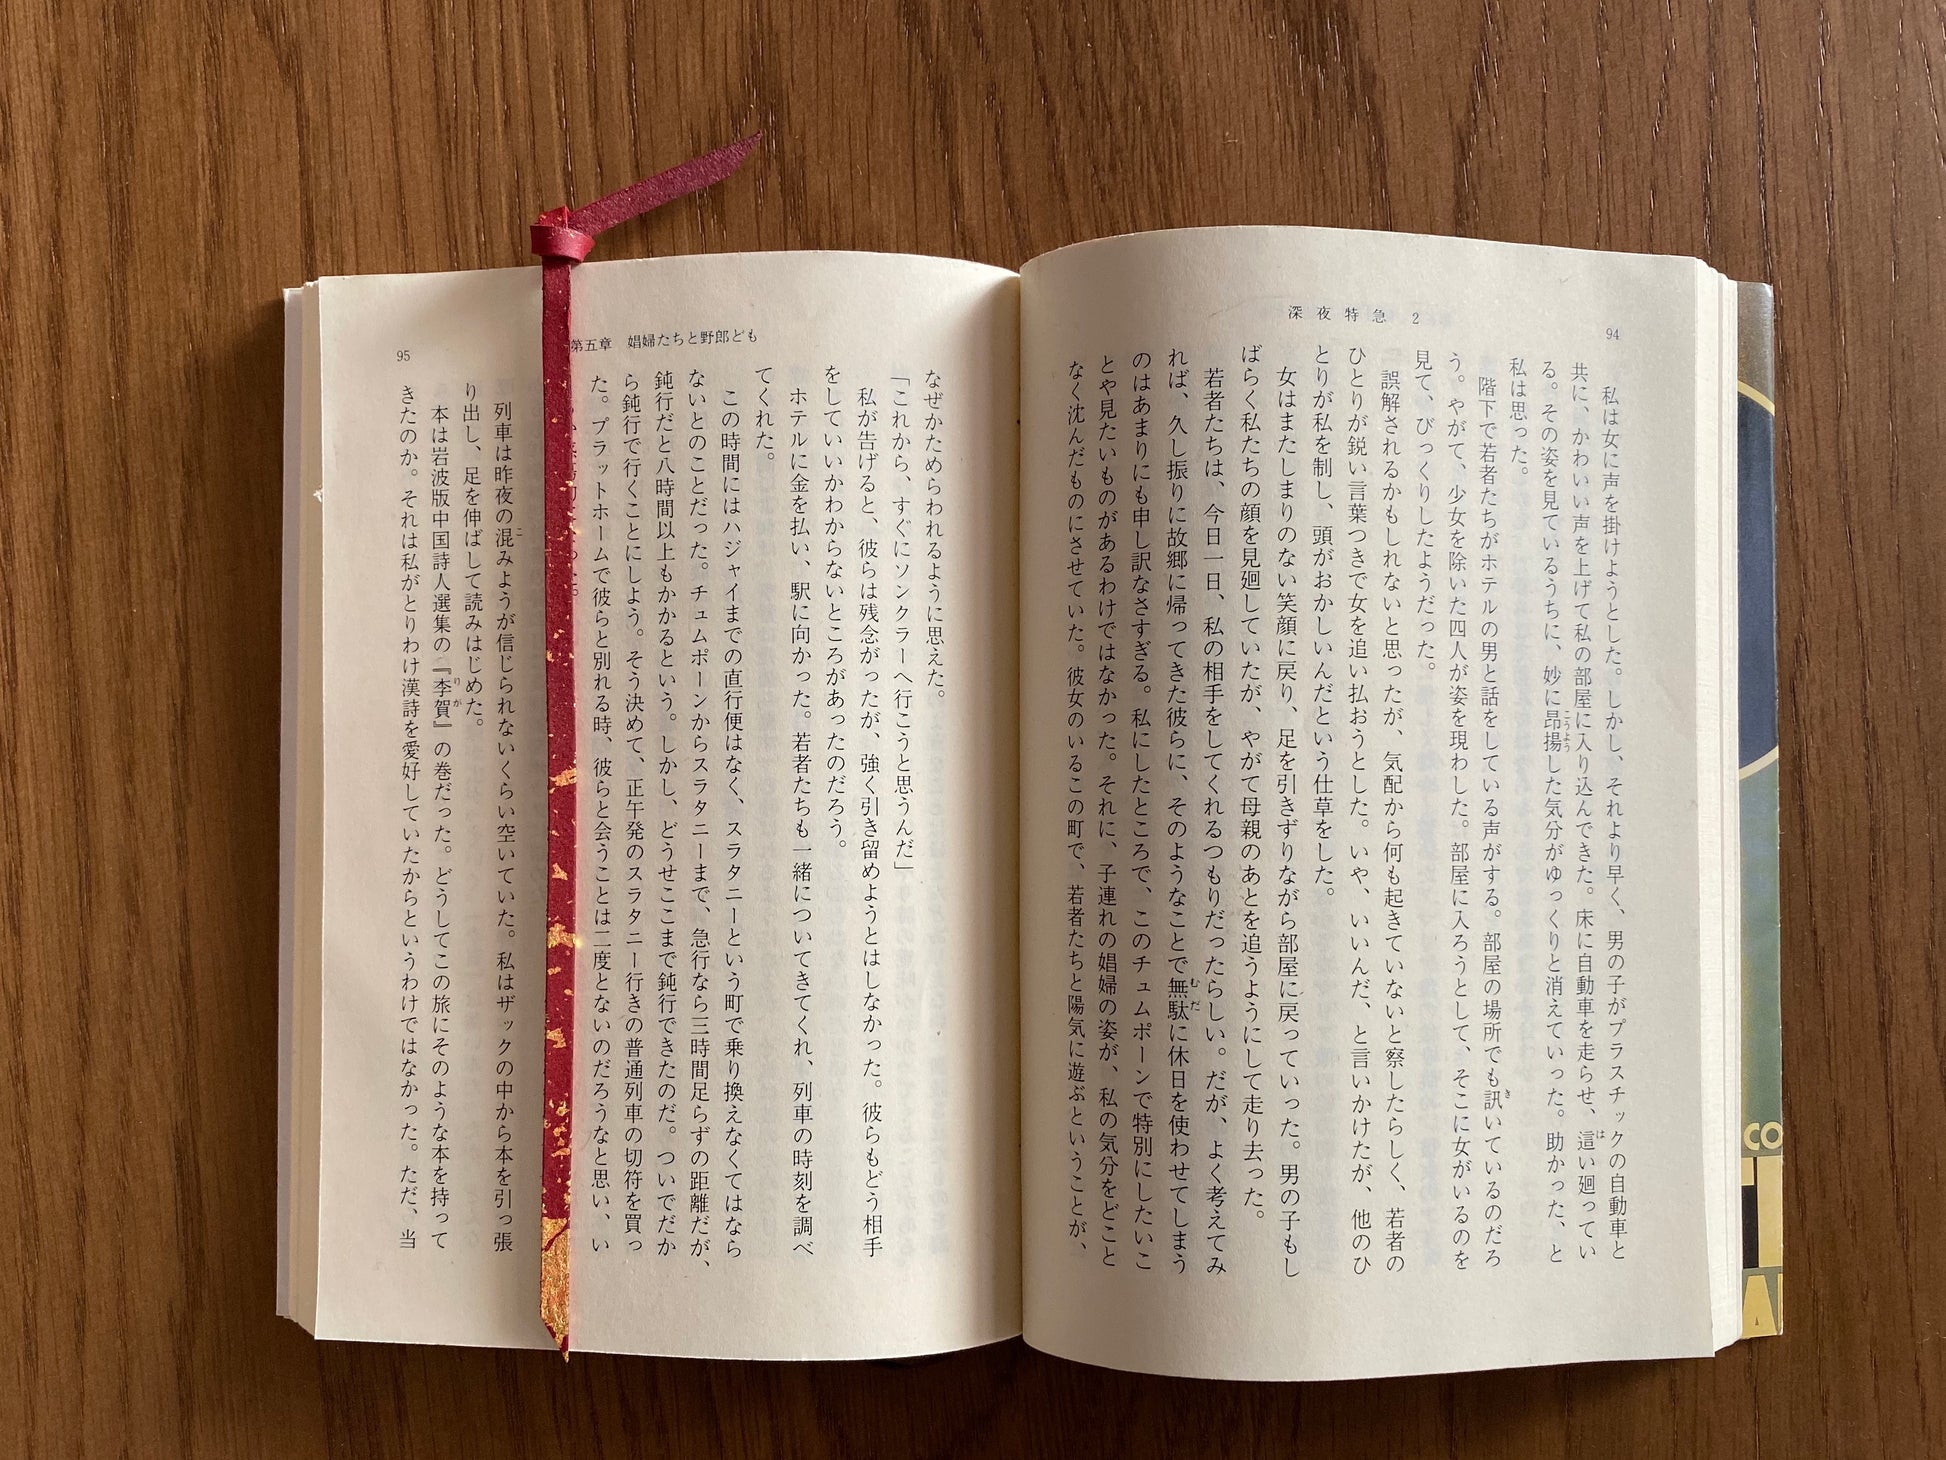 深夜特急 2
94
私は女に声を掛けようとした。しかし、それより早く、男の子がプラスチックの自動車と
共に、かわいい声を上げて私の部屋に入り込んできた。床に自動車を走らせ、這い廻ってい
る。その姿を見ているうちに、妙に昂揚した気分がゆっくりと消えていった。助かった、と
私は思った。
階下で若者たちがホテルの男と話をしている声がする。部屋の場所でも訊いているのだろ
う。やがて、少女を除いた四人が姿を現わした。部屋に入ろうとして、そこに女がいるのを
見て、びっくりしたようだった。
誤解されるかもしれないと思ったが、気配から何も起きていないと察したらしく、若者の
ひとりが鋭い言葉つきで女を追い払おうとした。いや、いいんだ、と言いかけたが、他のひ
とりが私を制し、頭がおかしいんだという仕草をした。
女はまたしまりのない笑顔に戻り、足を引きずりながら部屋に戻っていった。男の子もし
ばらく私たちの顔を見廻していたが、やがて母親のあとを追うようにして走り去った。
若者たちは、今日一日、私の相手をしてくれるつもりだったらしい。だが、よく考えてみ
れば、久し振りに故郷に帰ってきた彼らに、そのようなことで無駄に休日を使わせてしまう
のはあまりにも申し訳なさすぎる。私にしたところで、このチュムポーンで特別にしたいこ
とや見たいものがあるわけではなかった。それに、子連れの娼婦の姿が、私の気分をどこと
なく沈んだものにさせていた。彼女のいるこの町で、若者たちと陽気に遊ぶということが、
第五章 娼婦たちと野郎ども
95
なぜかためらわれるように思えた。
「これから、すぐにソンクラーへ行こうと思うんだ」
私が告げると、彼らは残念がったが、強く引き留めようとはしなかった。彼らもどう相手
をしていいかわからないところがあったのだろう。
ホテルに金を払い、駅に向かった。若者たちも一緒についてきてくれ、列車の時刻を調べ
てくれた。
この時間にはハジャイまでの直行便はなく、スラタニーという町で乗り換えなくてはなら
ないとのことだった。チュムポーンからスラタニーまで、急行なら三時間足らずの距離だが、
鈍行だと八時間以上もかかるという。しかし、どうせここまで鈍行できたのだ。ついでだか
ら鈍行で行くことにしよう。そう決めて、正午発のスラタニー行きの普通列車の切符を買っ
た。プラットホームで彼らと別れる時、彼らと会うことは二度とないのだろうなと思い、い
列車は昨夜の混みようが信じられないくらい空いていた。私はザックの中から本を引っ張
り出し、足を伸ばして読みはじめた。
本は岩波版中国詩人選集の『李賀』の巻だった。どうしてこの旅にそのような本を持って
きたのか。それは私がとりわけ漢詩を愛好していたからというわけではなかった。ただ、当
CO